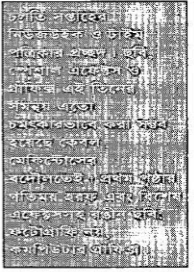 চলতি সপ্তাহের
নিউজউইক ও টাইম
পত্রিকার প্রচ্ছদ। ছবি,
স্পেশাল এফেক্টস ও
গ্রাফিক্স এই তিনের
সমন্বয় এতো
চমৎকারভাবে করা সম্ভব
হয়েছে কেবল
মেকিন্টোসের
বদৌলতেই। প্রথম পৃষ্ঠার
হরফ এবং বিশেষ
এফেক্টসসহ রঙিন ছবি,
ফটোগ্রাফি নয়,
কমপিউটার গ্রাফিক্স।